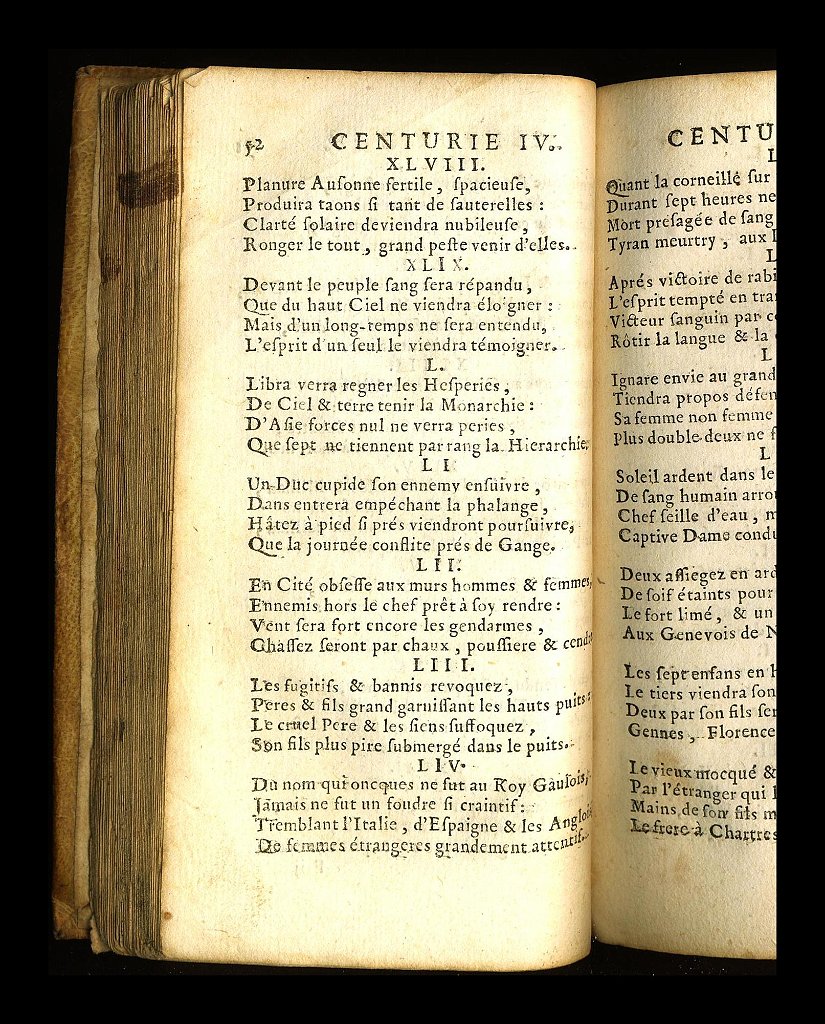 52 CENTURIE IV.
XLVIII.
Planure Ausonne fertile, spacieuse,
Produira taons si tant de sauterelles :
Clarté solaire deviendra nubileuse,
Ronger le tout, grand peste venir d'elles.
XLIX.
Devant le peuple sang sera répandu,
Que du haut Ciel ne viendra éloigner :
Mais d'un long-temps ne sera entendu,
L'esprit d'un seul le viendra témoigner.
L.
Libra verra regner les Hesperies,
De Ciel & terre tenir la Monarchie :
D'Asie forces nul ne verra peries,
Que sept ne tiennent par rang la Hierarchie.
LI
Un Duc cupide son ennemy ensuivre,
Dans entrera empéchant la phalange,
Hâtez à pied si prés viendront poursuivre,
Que la journée conflite prés de Gange.
LII.
En Cité obsesse aux murs hommes & femmes,
Ennemis hors le chef prêt à soy rendre :
Vent sera fort encore les gendarmes,
Chassez seront par chaux, poussiere & cendre
LIII.
Les fugitifs & bannis revoquez,
Peres & fils grand garnissant les hauts puits :
Le cruel Pere & les siens suffoquez,
Son fils plus pire submergé dans le puits.
LIV.
Du nom qui oncques ne fut au Roy Gaulois,
Jamais ne fut un foudre si craintif :
Tremblant l'Italie, d'Espaigne & les Anglois
De femmes étrangeres grandement attentif.
CENTU
L
Quant la corneille sur
Durant sept heures ne
Mort presagée de sang
Tyran meurtry, aux
L
Aprés victoire de rabi
L'esprit tempté en tra
Victeur sanguin par c
Rôtir la langue & la
L
Ignare envie au grand
Tiendra propos défen
Sa femme non femme
Plus double deux ne f
L
Soleil ardent dans le
De sang humain arro
Chef seille d'eau, m
Captive Dame condu
Deux assiegez en ard
De soif étaints pour
Le fort limé, & un
Aux Genevois de N
Les sept enfans en h
Le tiers viendra son
Deux par son fils ser
Gennes, Florence
Le vieux mocqué &
Par l'étranger qui
Mains de son fils m
Le frere à Chartres